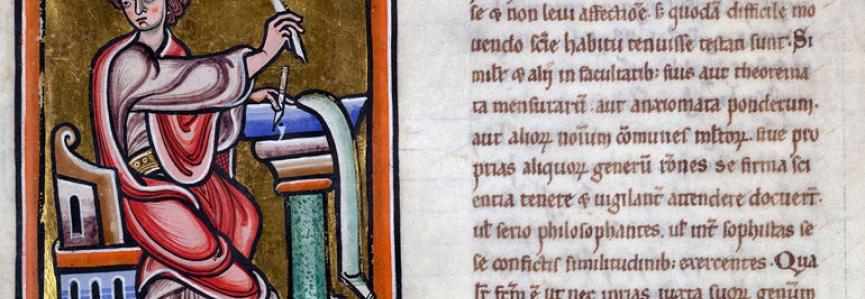 se & non leui affectiōe. ṡ quodā difficile mo
uendo scīe habitu tenuisse testati sunt. Si
milr̄ & alij in facultatib; suis aut theorema
ta mensurarū. aut anxiomata ponderum.
aut alioꝝ nōium cōmunes mltoꝝ. siue pro
prias aliquoꝝ generū rōnes se firma sci
entia tenere & uigilant̄ attendere docuerr̄.
ul̄ serio philosophantes, ul̄ int̄ sophistas se
se confictis similitudinib; exercentes. Qua
ut nec inrias iuxta suoꝝ genūm